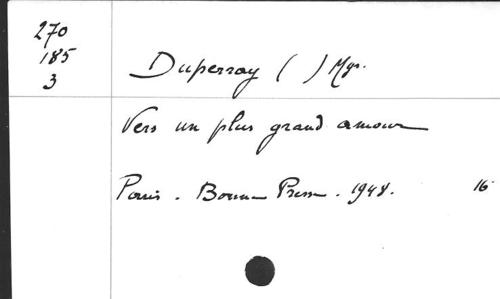 270
185
3
Duperray ( ) Mgr.
Vers un plus grand amour
Paris. Bonne Presse. 1948.
16